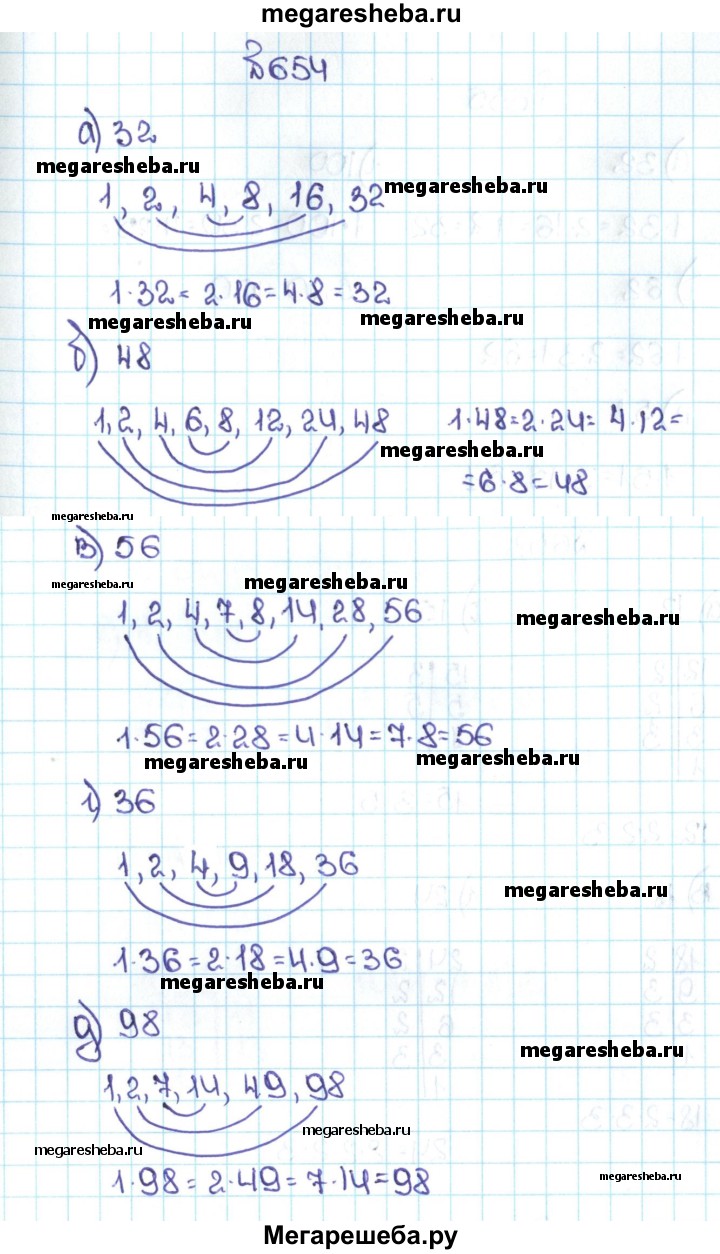 megaresheba.ru
№654
а) 32
megaresheba.ru
1, 2, 4, 8, 16, 32 megaresheba.ru
1·32 = 2·16 = 4·8 = 32
megaresheba.ru megaresheba.ru
б) 48
1, 2, 4, 6, 8, 12, 24, 48 1·48 = 2·24 = 4·12 =
megaresheba.ru
= 6·8 = 48
megaresheba.ru
в) 56
megaresheba.ru megaresheba.ru
1, 2, 4, 7, 8, 14, 28, 56 megaresheba.ru
1·56 = 2·28 = 4·14 = 7·8 = 56
megaresheba.ru megaresheba.ru
г) 36
1, 2, 4, 9, 18, 36
megaresheba.ru
1·36 = 2·18 = 4·9 = 36
megaresheba.ru
д) 98
megaresheba.ru
1, 2, 7, 14, 49, 98
megaresheba.ru
megaresheba.ru
1·98 = 2·49 = 7·14 = 98 megaresheba.ru
Мегарешеба.ру